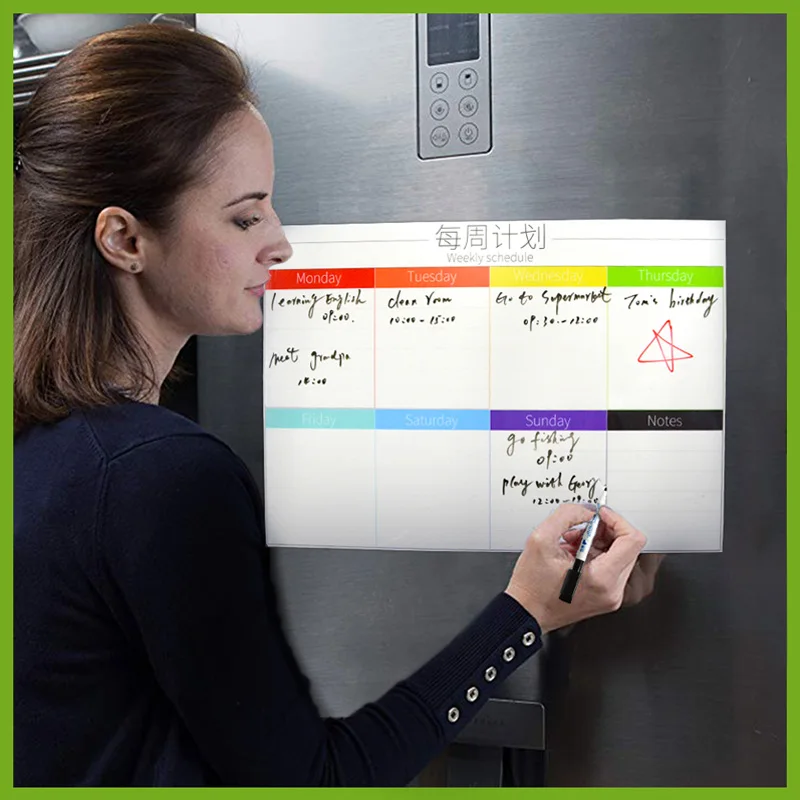 每周计划
Weekly schedule
Monday Tuesday Wednesday Thursday
learning English
09:00.
meat grandpa
18:00
clean room
10:00-15:00
Go to Supermarket
09:30-12:00
Tom's birthday
Friday Saturday Sunday Notes
go fishing
09:00
play with Gary.
12:00-19:00